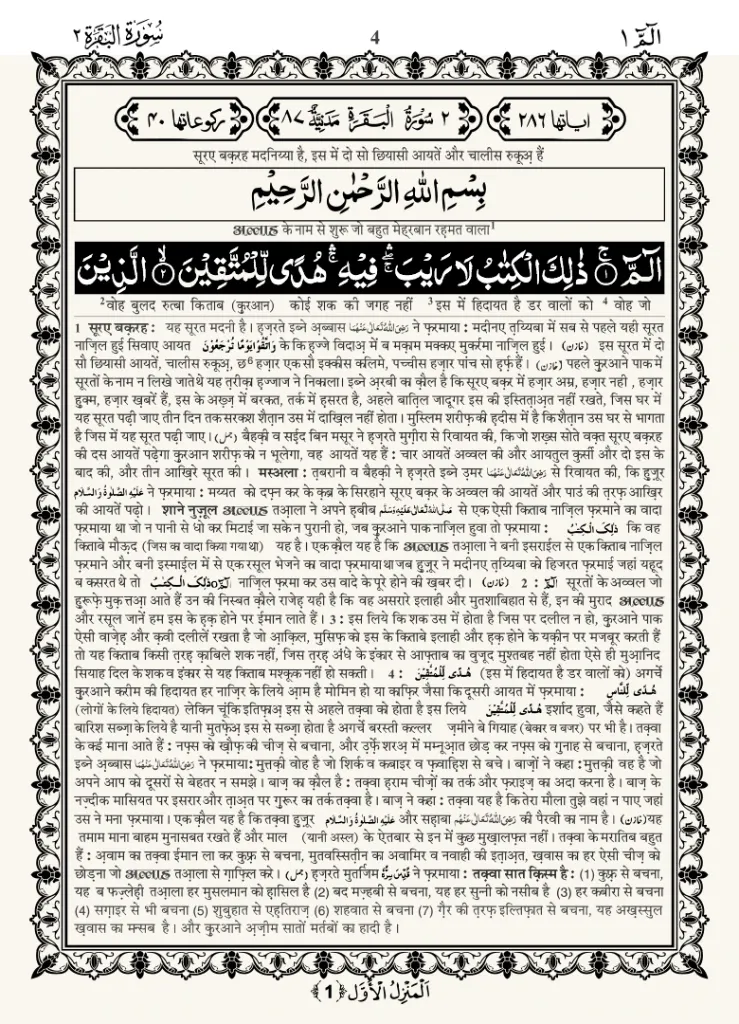 الٓمّٓ ١
4
سُوْرَةُ الْبَقَرَة ٢
اٰیاتها ٢٨٦
٢ سُوْرَةُ الْبَقَرَةِ مَدَنِیَّةٌ ٨٧
رکوعاتها ٤٠
सूरए बक़रह मदनिय्या है, इस में दो सो छियासी आयतें और चालीस रुकूअ़ हैं
بِسْمِ اللّٰهِ الرَّحْمٰنِ الرَّحِیْمِ
के नाम से शुरू जो बहुत मेह्रबान रह़मत वाला¹
الٓمّٓ ۚ ١ ذٰلِكَ الْكِتٰبُ لَا رَیْبَ ۛ فِیْهِ ۛ هُدًى لِّلْمُتَّقِیْنَ ۙ ٢ الَّذِیْنَ
²वोह बुलद रुत्बा किताब (क़ुरआन) कोई शक की जगह नहीं ³इस में हिदायत है डर वालों को ⁴ वोह जो
1 सूरए बक़रह : यह सूरत मदनी है। हज़रते इब्ने अ़ब्बास رَضِیَ اللّٰهُ تَعَالٰی عَنْهُمَا ने फ़रमाया : मदीनए त़य्यिबा में सब से पहले यही सूरत
नाज़िल हुई सिवाए आयत وَاتَّقُوْا یَوْمًا تُرْجَعُوْنَ के कि ह़ज्जे विदाअ़ में ब मक़ाम मक्कए मुकर्रमा नाज़िल हुई। (خازن) इस सूरत में दो
सौ छियासी आयतें, चालीस रुकूअ़, छ⁶ हज़ार एक सौ इक्कीस कलिमे, पच्चीस हज़ार पांच सो ह़र्फ़ हैं। (خازن) पहले क़ुरआने पाक में
सूरतों के नाम न लिखे जाते थे यह त़रीक़ा ह़ज्जाज ने निकाला। इब्ने अ़रबी का क़ौल है कि सूरए बक़र में हज़ार अम्र, हज़ार नही , हज़ार
हुक्म, हज़ार ख़बरें हैं, इस के अख़्ज़ में बरकत, तर्क में ह़सरत है, अहले बात़िल जादूगर इस की इस्तित़ाअ़त नहीं रखते, जिस घर में
यह सूरत पढ़ी जाए तीन दिन तक सरकश शैत़ान उस में दाख़िल नहीं होता। मुस्लिम शरीफ़ की ह़दीस में है कि शैत़ान उस घर से भागता
है जिस में यह सूरत पढ़ी जाए। बैहक़ी व सई़द बिन मसूर ने हज़रते मुग़ीरा से रिवायत की, कि जो शख़्स सोते वक़्त सूरए बक़रह
की दस आयतें पढ़ेगा क़ुरआन शरीफ़ को न भूलेगा, वह आयतें यह हैं : चार आयतें अव्वल की और आयतुल कुर्सी और दो इस के
बाद की, और तीन आख़िरे सूरत की। मस्अला : त़बरानी व बैहक़ी ने हज़रते इब्ने उ़मर رَضِیَ اللّٰهُ تَعَالٰی عَنْهُمَا से रिवायत की, कि हुज़ूर
عَلَیْهِ الصَّلٰوةُ وَالسَّلَام ने फ़रमाया : मय्यत को दफ़्न कर के क़ब्र के सिरहाने सूरए बक़र के अव्वल की आयतें और पाउं की त़रफ़ आख़िर
की आयतें पढ़ो। शाने नुज़ूल तआ़ला ने अपने ह़बीब صَلَّی اللّٰهُ تَعَالٰی عَلَیْهِ وَسَلَّم से एक ऐसी किताब नाज़िल फ़रमाने का वादा
फ़रमाया था जो न पानी से धो कर मिटाई जा सके न पुरानी हो, जब क़ुरआने पाक नाज़िल हुवा तो फ़रमाया : ذٰلِكَ الْكِتٰبُ कि वह
किताबे मौऊ़द (जिस का वादा किया गया था) यह है। एक क़ौल यह है कि तआ़ला ने बनी इसराईल से एक किताब नाज़िल
फ़रमाने और बनी इस्माईल में से एक रसूल भेजने का वादा फ़रमाया था जब हुज़ूर ने मदीनए त़य्यिबा को हिजरत फ़रमाई जहां यहूद
ब कसरत थे तो الٓمّٓ ذٰلِكَ الْكِتٰبُ नाज़िल फ़रमा कर उस वादे के पूरे होने की ख़बर दी। (خازن) 2 : الٓمّٓ सूरतों के अव्वल जो
हुरूफ़े मुक़त्तआ़ आते हैं उन की निस्बत क़ौले राजेह़ यही है कि वह असरारे इलाही और मुतशाबिहात से हैं, इन की मुराद
और रसूल जानें हम इस के ह़क़ होने पर ईमान लाते हैं। 3 : इस लिये कि शक उस में होता है जिस पर दलील न हो, क़ुरआने पाक
ऐसी वाज़ेह़ और क़वी दलीलें रखता है जो आ़क़िल, मुसिफ़ को इस के किताबे इलाही और ह़क़ होने के यक़ीन पर मजबूर करती हैं
तो यह किताब किसी त़रह़ क़ाबिले शक नहीं, जिस त़रह़ अंधे के इंकार से आफ़्ताब का वुजूद मुश्तबह नहीं होता ऐसे ही मुआ़निद
सियाह दिल के शक व इंकार से यह किताब मश्कूक नहीं हो सकती। 4 : هُدًى لِّلْمُتَّقِیْنَ (इस में हिदायत है डर वालों को) अगर्चे
क़ुरआने करीम की हिदायत हर नाज़िर के लिये आ़म है मोमिन हो या काफ़िर जैसा कि दूसरी आयत में फ़रमाया : هُدًى لِّلنَّاسِ
(लोगों के लिये हिदायत) लेकिन चूंकि इंतिफ़ाअ़ इस से अहले तक़्वा को होता है इस लिये هُدًى لِّلْمُتَّقِیْنَ इर्शाद हुवा, जैसे कहते हैं
बारिश सब्ज़ा के लिये है यानी मुतफ़ेअ़ इस से सब्ज़ा होता है अगर्चे बरसती कल्लर ज़मीने बे गियाह (बेकार व बंजर) पर भी है। तक़्वा
के कई माना आते हैं : नफ़्स को ख़ौफ़ की चीज़ से बचाना, और उ़र्फ़े शरअ़ में मम्नूआ़त छोड़ कर नफ़्स को गुनाह से बचाना, हज़रते
इब्ने अ़ब्बास رَضِیَ اللّٰهُ تَعَالٰی عَنْهُمَا ने फ़रमाया: मुत्तक़ी वोह है जो शिर्क व कबाइर व फ़वाह़िश से बचे। बाज़ों ने कहा :मुत्तक़ी वह है जो
अपने आप को दूसरों से बेहतर न समझे। बाज़ का क़ौल है : तक़्वा ह़राम चीज़ों का तर्क और फ़राइज़ का अदा करना है। बाज़ के
नज़्दीक मासियत पर इसरार और त़ाअ़त पर ग़ुरूर का तर्क तक़्वा है। बाज़ ने कहा : तक़्वा यह है कि तेरा मौला तुझे वहां न पाए जहां
उस ने मना फ़रमाया। एक क़ौल यह है कि तक़्वा हुज़ूर عَلَیْهِ الصَّلٰوةُ وَالسَّلَام और सह़ाबा رَضِیَ اللّٰهُ تَعَالٰی عَنْهُم की पैरवी का नाम है। (خازن)यह
तमाम माना बाहम मुनासबत रखते हैं और माल (यानी अस्ल) के ऐतबार से इन में कुछ मुख़ालफ़त नहीं। तक़्वा के मरातिब बहुत
हैं : अ़वाम का तक़्वा ईमान ला कर कुफ़्र से बचना, मुतवस्सित़ीन का अवामिर व नवाही की इत़ाअ़त, ख़वास का हर ऐसी चीज़ को
छोड़ना जो तआ़ला से ग़ाफ़िल करे। ह़ज़रते मुतर्जिम قُدِّسَ سِرُّهٗ ने फ़रमाया : तक़्वा सात क़िस्म है : (1) कुफ़्र से बचना,
यह ब फ़ज़्लेही तआ़ला हर मुसलमान को ह़ासिल है (2) बद मज़्हबी से बचना, यह हर सुन्नी को नसीब है (3) हर कबीरा से बचना
(4) सग़ाइर से भी बचना (5) शुबुहात से एह़तिराज़ (6) शहवात से बचना (7) ग़ैर की त़रफ़ इल्तिफ़ात से बचना, यह अख़स्सुल
ख़वास का मन्सब है। और क़ुरआने अ़ज़ीम सातों मर्तबों का हादी है।
اَلْمَنْزِلُ الْاَوَّل ﴿1﴾